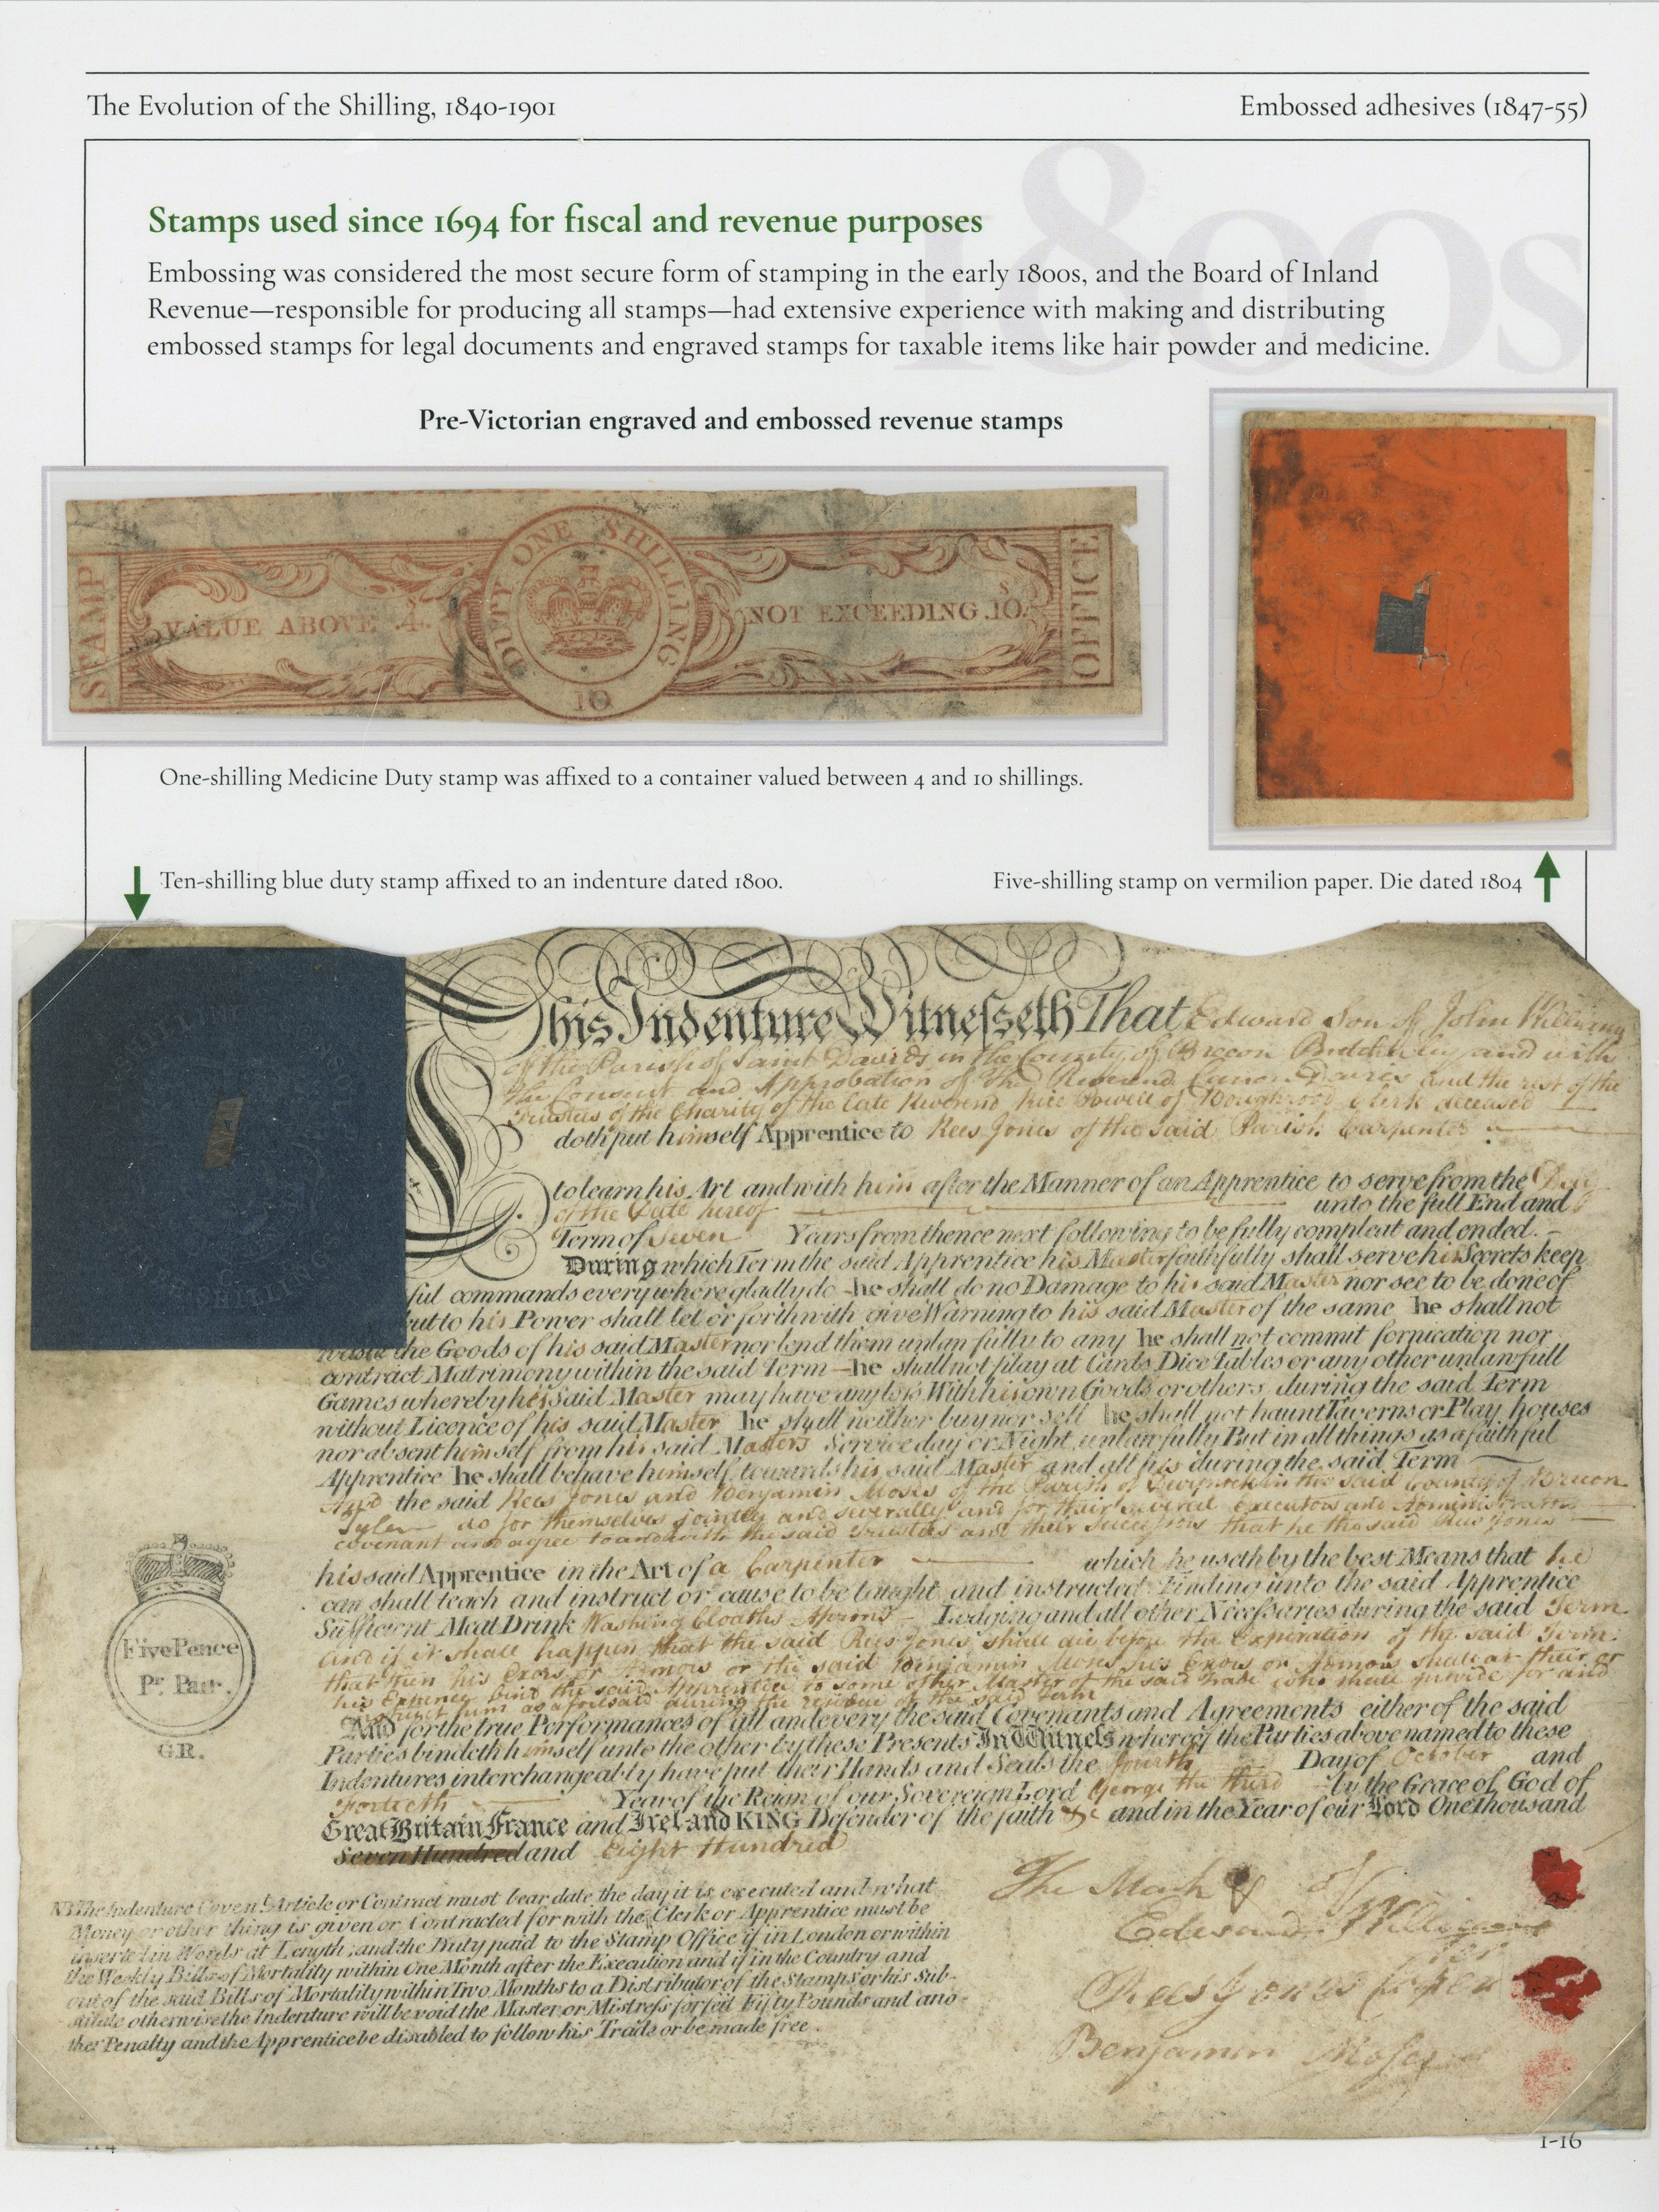 The Evolution of the Shilling, 1840-1901
Embossed adhesives (1847-55)
1800s
Stamps used since 1694 for fiscal and revenue purposes
Embossing was considered the most secure form of stamping in the early 1800s, and the Board of Inland
Revenue—responsible for producing all stamps—had extensive experience with making and distributing
embossed stamps for legal documents and engraved stamps for taxable items like hair powder and medicine.
Pre-Victorian engraved and embossed revenue stamps
STAMP
VALUE ABOVE .4s.
DUTY ONE SHILLING
10
NOT EXCEEDING .10s.
OFFICE
One-shilling Medicine Duty stamp was affixed to a container valued between 4 and 10 shillings.
Ten-shilling blue duty stamp affixed to an indenture dated 1800.
Five-shilling stamp on vermilion paper. Die dated 1804
This Indenture Witnesseth That Edward Son of John Williams
of the Parish of Saint Davids in the County of Brecon and with
the Consent and Approbation of the Reverend Canon Davies and the rest of the
Trustees of the Charity of the late Reverend Rice Powell of Clerk deceased
doth put himself Apprentice to Rees Jones of the said Parish Carpenter
to learn his Art and with him after the Manner of an Apprentice to serve from the Day
of the Date hereof unto the full End and
Term of Seven Years from thence next following to be fully compleat and ended.
During which Term the said Apprentice his Master faithfully shall serve his Secrets keep
ful commands every where gladly do he shall do no Damage to his said Master nor see to be done of
but to his Power shall let or forthwith give Warning to his said Master of the same he shall not
waste the Goods of his said Master nor lend them unlawfully to any he shall not commit fornication nor
contract Matrimony within the said Term he shall not play at Cards Dice Tables or any other unlawfull
Games whereby his Said Master may have any loss With his own Goods or others during the said Term
without Licence of his said Master he shall neither buy nor sell he shall not haunt Taverns or Play houses
nor absent himself from his said Masters Service day or Night unlawfully But in all things as a faithful
Apprentice he shall behave himself towards his said Master and all his during the said Term
And the said Rees Jones and Benjamin Moses of the Parish of in the said County of Brecon
Tyler do for themselves jointly and severally and for their several Executors and Administrators
covenant and agree to and with the said Trustees and their Successors that he the said Rees Jones
his said Apprentice in the Art of a Carpenter which he useth by the best Means that he
can shall teach and instruct or cause to be taught and instructed Finding unto the said Apprentice
Sufficient Meat Drink Washing Cloaths Lodging and all other Necessaries during the said Term
And if it shall happen that the said Rees Jones shall die before the Expiration of the said Term
that then his Exors or Admors or the said Benjamin Moses his Exors or Admors shall at their or
his Expence bind the said Apprentice to some other Master of the said Trade who shall provide for and
instruct him as aforesaid during the residue of the said Term
And for the true Performances of all and every the said Covenants and Agreements either of the said
Parties bindeth himself unto the other by these Presents In Witness whereof the Parties above named to these
Indentures interchangeably have put their Hands and Seals the fourth Day of October and
Fortieth Year of the Reign of our Sovereign Lord George the third by the Grace of God of
Great Britain France and Ireland KING Defender of the faith &c and in the Year of our Lord One thousand
Seven Hundred and Eight Hundred
Five Pence
Pr. Pair.
G.R.
NB The Indenture Coven.t Article or Contract must bear date the day it is executed and what
Money or other thing is given or Contracted for with the Clerk or Apprentice must be
inserted in Words at Length and the Duty paid to the Stamp Office if in London or within
the Weekly Bills of Mortality within One Month after the Execution and if in the Country and
out of the said Bills of Mortality within Two Months to a Distributor of the Stamps or his Sub-
stitute otherwise the Indenture will be void the Master or Mistress forfeit Fifty Pounds and ano-
ther Penalty and the Apprentice be disabled to follow his Trade or be made free.
The Mark of
Edward Williams
Rees Jones
Benjamin Moses
1-16